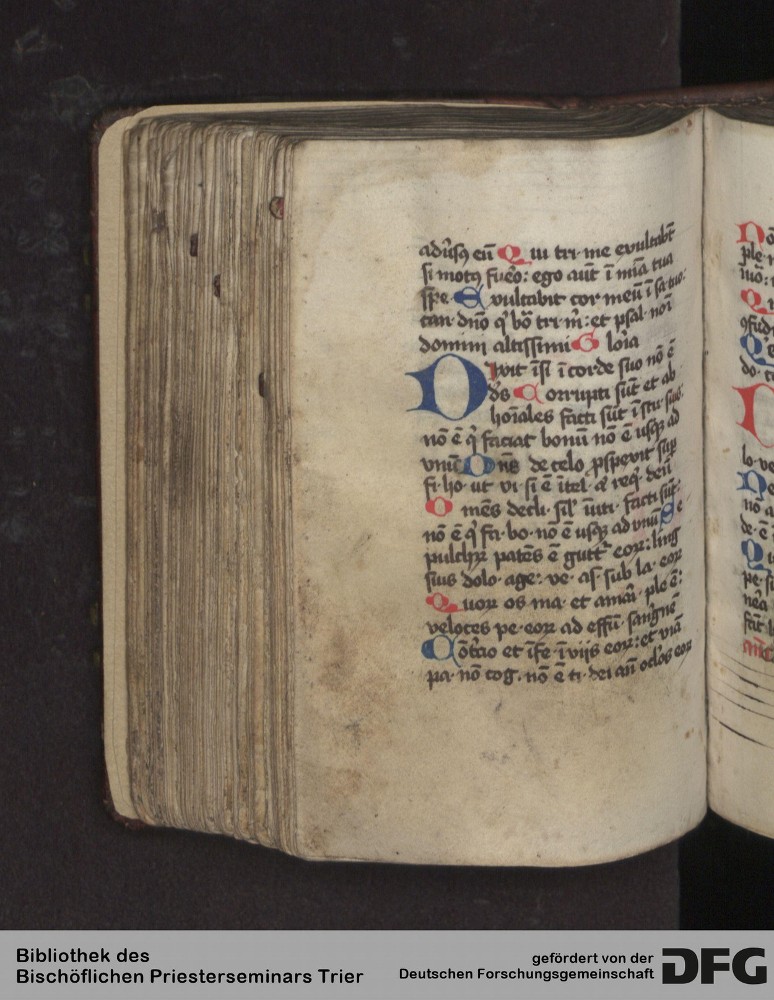 adũsꝫ eũ Qui tri·me exultabt̃
si motꝰ fuẽo: ego aut̃ ĩ mĩa tua
spe· Exultabit cor meũ ĩ sa·tuo:
can·dñо q̃ bõ tri·m̃: et psal·noĩ
domini altissimi Glõia
Dixit ĩsi ĩ corde suo nõ ẽ
dẽs Corrupti sũt et ab
hoĩales facti sũt ĩ stu·suis
nõ ẽ q̃ faciat bonũ nõ ẽ usqꝫ ad
vnũ Dñs de celo ꝓspexit sup̃
fi·ho·ut vi·si ẽ ĩtel·aꝉ req̃·deũ
Omẽs decli·sil̃ ĩuti·facti sũt:
nõ ẽ q̃ fa·bo·nõ ẽ usqꝫ ad vnũ Se
pulchꝝ patẽs ẽ gutt̃ eoꝝ: ling
suis dolo·age: ve·as·sub la·eoꝝ
Quoꝝ os ma·et amãi·ple ẽ:
veloces pe·eoꝝ ad effũ·sangnẽ
Cõtⁱcio et ĩfe·ĩ viis eoꝝ: et viã
pa·nõ cog·nõ ẽ ti·dei añ ocl̃os eoꝝ
Bibliothek des
Bischöflichen Priesterseminars Trier
gefördert von der
Deutschen Forschungsgemeinschaft DFG